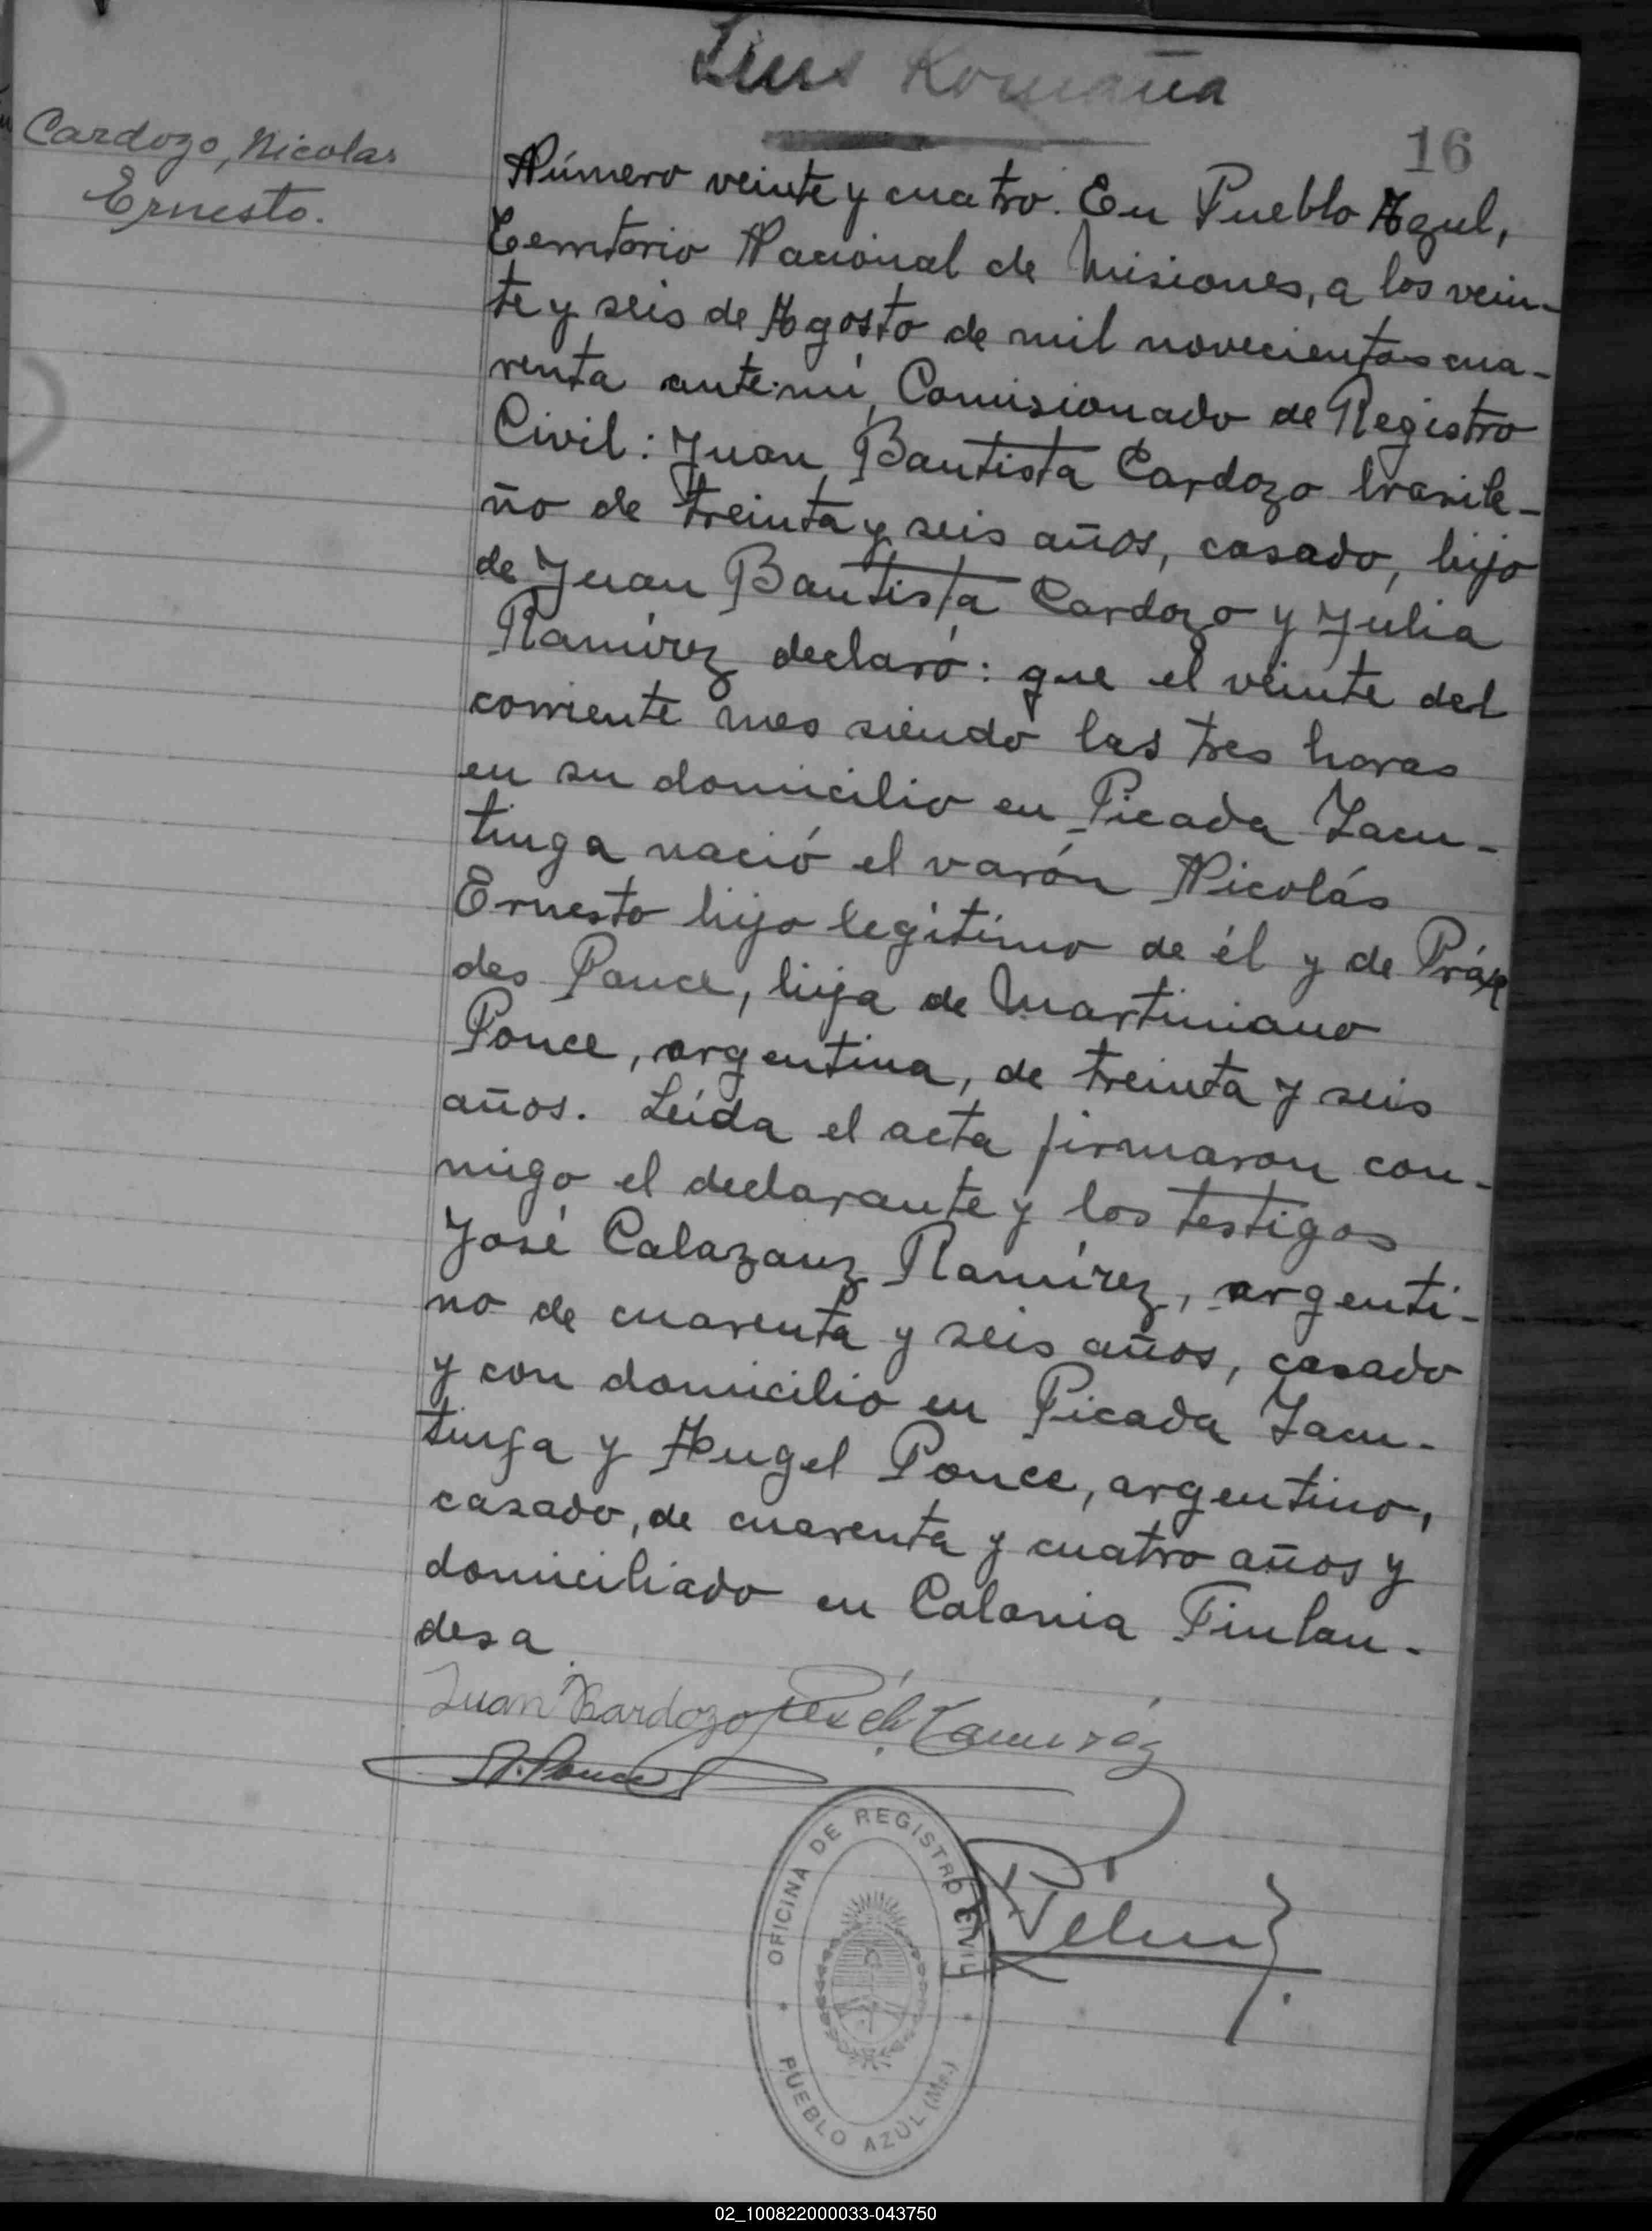 Luis Romaña
16
Cardozo, Nicolas
Ernesto.
Número veinte y cuatro. En Pueblo Azul,
Territorio Nacional de Misiones, a los vein-
te y seis de Agosto de mil novecientos cua-
renta ante mí, Comisionado de Registro
Civil: Juan Bautista Cardozo brasile-
ño de treinta y seis años, casado, hijo
de Juan Bautista Cardozo y Julia
Ramírez declaró: que el veinte del
corriente mes siendo las tres horas
en su domicilio en Picada Yacu-
tinga nació el varón Nicolás
Ernesto hijo legítimo de él y de Práxe
des Ponce, hija de Martiniano
Ponce, argentina, de treinta y seis
años. Leída el acta firmaron con-
migo el declarante y los testigos
José Calazanz Ramírez, argenti-
no de cuarenta y seis años, casado
y con domicilio en Picada Yacu-
tinga y Angel Ponce, argentino,
casado, de cuarenta y cuatro años y
domiciliado en Colonia Finlan-
desa
Juan Bardozo Ramiréz
A. Ponce
OFICINA DE REGISTRO CIVIL
PUEBLO AZUL (Ms.)
02_100822000033-043750